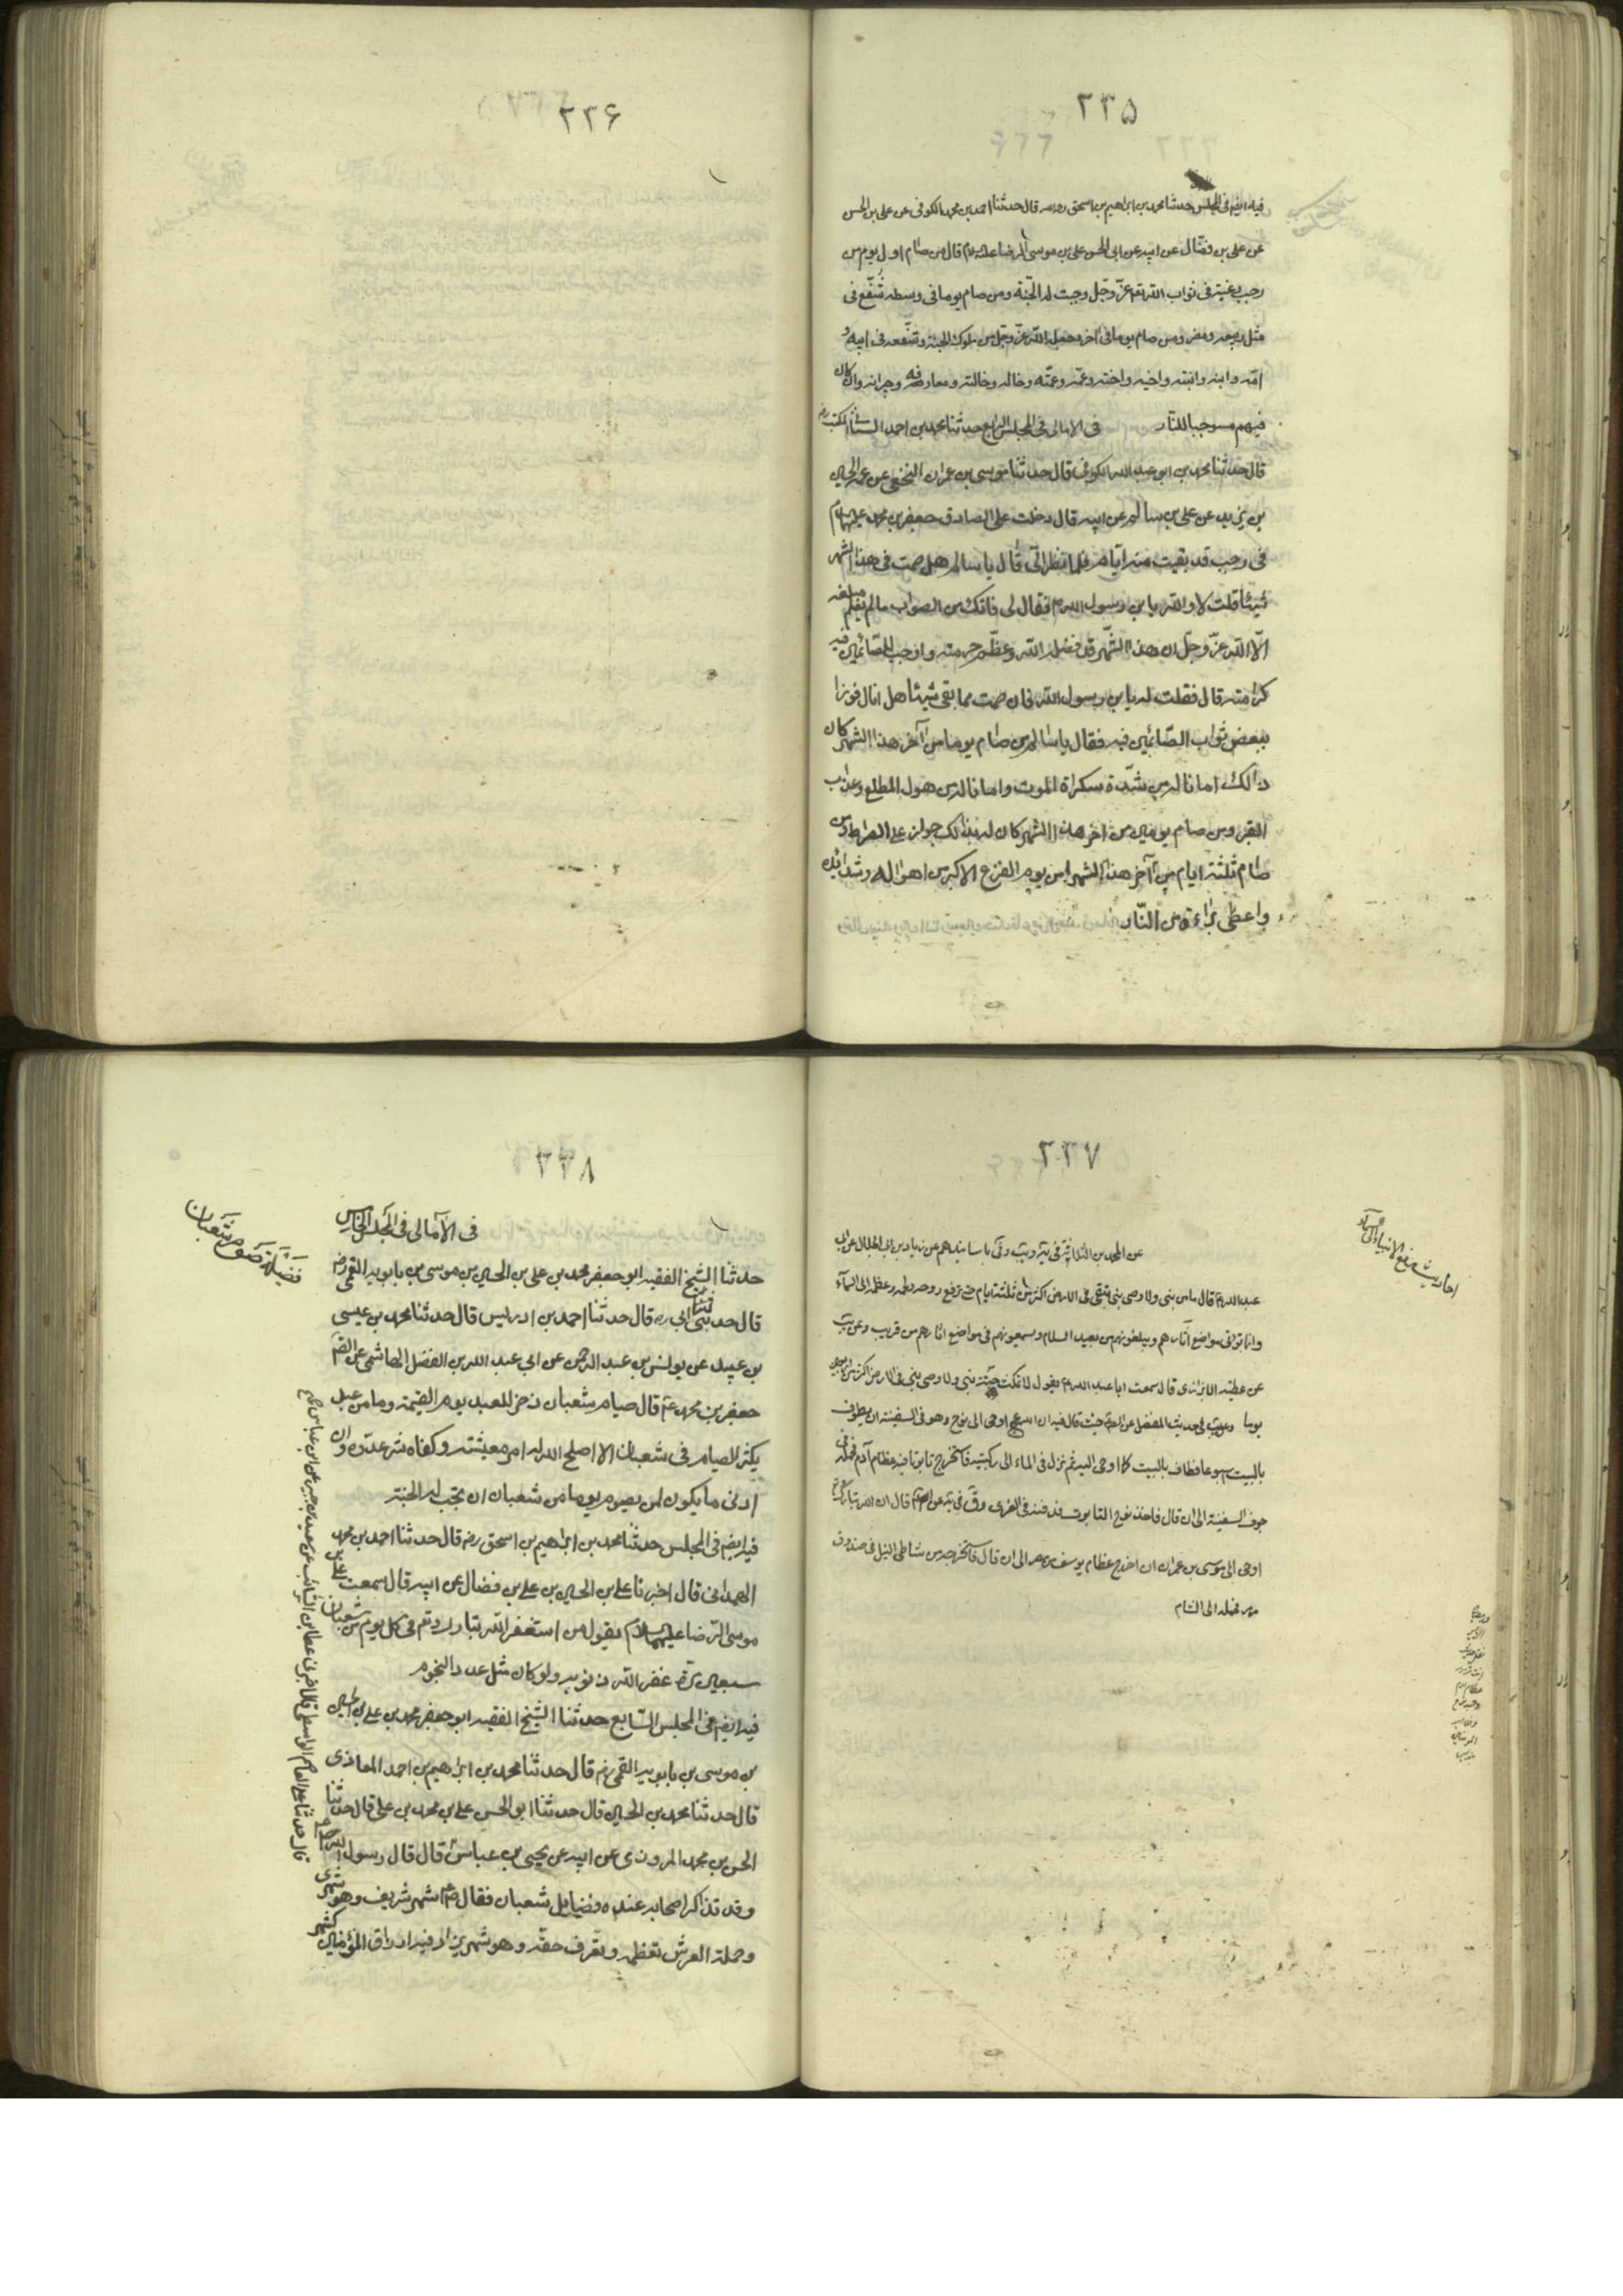 ۲۳۵
فيه ايضا فى المجلس حدثنا محمد بن ابراهيم بن اسحق رحمه الله قال حدثنا احمد بن محمد الكوفى عن على بن الحسن
عن على بن فضّال عن ابيه عن ابى الحسن على بن موسى الرضا عليه السلام قال من صام اول يوم من
رجب رغبة فى ثواب الله عزّ وجل وجبت له الجنّة ومن صام يوما فى وسطه شفّع فى
مثل ربيعه ومضر ومن صام يوما فى اخره جعله الله عزّ وجل من ملوك الجنة وشفّعه فى ابيه و
امّه وابنه وابنته واخيه واخته وعمّه وعمّته وخاله وخالته ومعارفه وجيرانه وان كان
فيهم مستوجبا للنّار فى الامالى فى المجلس الرابع حدثنا محمد بن احمد السنانى المكتب رض
قال حدثنا محمد بن ابو عبد الله الكوفى قال حدثنا موسى بن عمران النخعى عن عمه الحسين
بن يزيد عن على بن سالم عن ابيه قال دخلت على الصادق جعفر بن محمد عليهما السلام
فى رجب قد بقيت منه ايّام فلما نظر الىّ قال يا سالم هل صمت فى هذا الشهر
شيئا قلت لا والله يا بن رسول الله فقال لى فاتك من الثواب ما لم يعلم مبلغه
الّا الله عزّ وجلّ ان هذا الشّهر قد فضله الله وعظّم حرمته واوجب للصّائمين فيه
كرامته قال فقلت له يا بن رسول الله فان صمت مما بقى شيئا هل انال فوزا
ببعض ثواب الصّائمين فيه فقال يا سالم من صام يوما من آخر هذا الشهر كان
ذالك امانا له من شدّة سكراة الموت وامانا له من هول المطلع وعذاب
القبر ومن صام يومين من اخر هذا الشهر كان له بذالك جواز على الصراط ومن
صام ثلثة ايام من آخر هذا الشهر امن يوم الفزع الاكبر من اهواله وشدائده
واعطى براءة من النّار
۲۳۶
۲۳۷
احاديث رفع الانبياء الى السماء
عبد الله قال ما من نبى ولا وصى نبى يبقى فى الارض اكثر من ثلثة ايام حتى ترفع روحه ولحمه وعظمه الى السمآء
وانما تؤتى مواضع آثارهم ويبلغونهم من بعيد السلام ويسمعونهم فى مواضع اثارهم من قريب
عن عطيه الابزارى قال سمعت ابا عبد الله يقول لا تمكث جثّة نبى ولا وصى نبى فى الارض اكثر من اربعين
يوما وعن فى حديث المفضل عن حيث قال فيه ان الله اوحى الى نوح وهو فى السفينة ان يطوف
بالبيت اسبوعا فطاف بالبيت كما اوحى اليه ثم نزل فى الماء الى ركبتيه فاستخرج تابوتا فيه عظام آدم فحمله فى
جوف السفينة الى ان قال فاخذ نوح التابوت فدفنه فى الغرى قال ان الله تبارك وتعالى
اوحى الى موسى بن عمران ان اخرج عظام يوسف من مصر الى ان قال فاستخرجه من شاطى النيل فى صندوق
مرمر فحمله الى الشام
۲۳۸
فضيلة صوم شعبان
فى الآمالى فى المجلس الخامس
حدثنا الشيخ الفقيه ابو جعفر محمد بن على بن الحسين بن موسى بن بابويه القمى رض
قال حدثنى ابى ره قال حدثنا احمد بن ادريس قال حدثنا محمد بن عيسى
بن عبيد عن يونس بن عبد الرحمن عن ابى عبد الله بن الفضل الهاشمى عن الصّادق
جعفر بن محمد ع قال صيام شعبان ذخر للعبد يوم القيمة وما من عبد
يكثر الصيام فى شعبان الا اصلح الله له امر معيشته وكفاه شر عدوّه وان
ادنى ما يكون لمن يصوم يوما من شعبان ان تجب له الجنة
فيه ايضا فى المجلس حدثنا محمد بن ابراهيم بن اسحق رض قال حدثنا احمد بن محمد
الهمدانى قال اخبرنا على بن الحسن بن على بن فضال عن ابيه قال سمعت على بن
موسى الرّضا عليهما السلام يقول من استغفر الله تبارك وتعم فى كل يوم من شعبان
سبعين مرة غفر الله ذنوبه ولو كان مثل عدد النجوم
فيه ايضا فى المجلس السّابع حدثنا الشيخ الفقيه ابو جعفر محمد بن على بن الحسين
بن موسى بن بابويه القمى رض قال حدثنا محمد بن ابراهيم بن احمد المعاذى
قال حدثنا محمد بن الحسين قال حدثنا ابو الحسن على بن محمد بن على قال حدثنا
الحسن بن محمد المروزى عن ابيه عن يحيى بن عياش قال قال رسول الله ص
وقد تذاكر اصحابه عنده فضايل شعبان فقال شهر شريف وهو شهرى
وحملة العرش تعظمه وتعرف حقّه وهو شهر يزاد فيه ارزاق المؤمنين كشهر
قال حدثنا على بن عاصم الواسطى قال اخبرنى عطا بن السّائب عن سعيد بن جبير عن ابن عباس